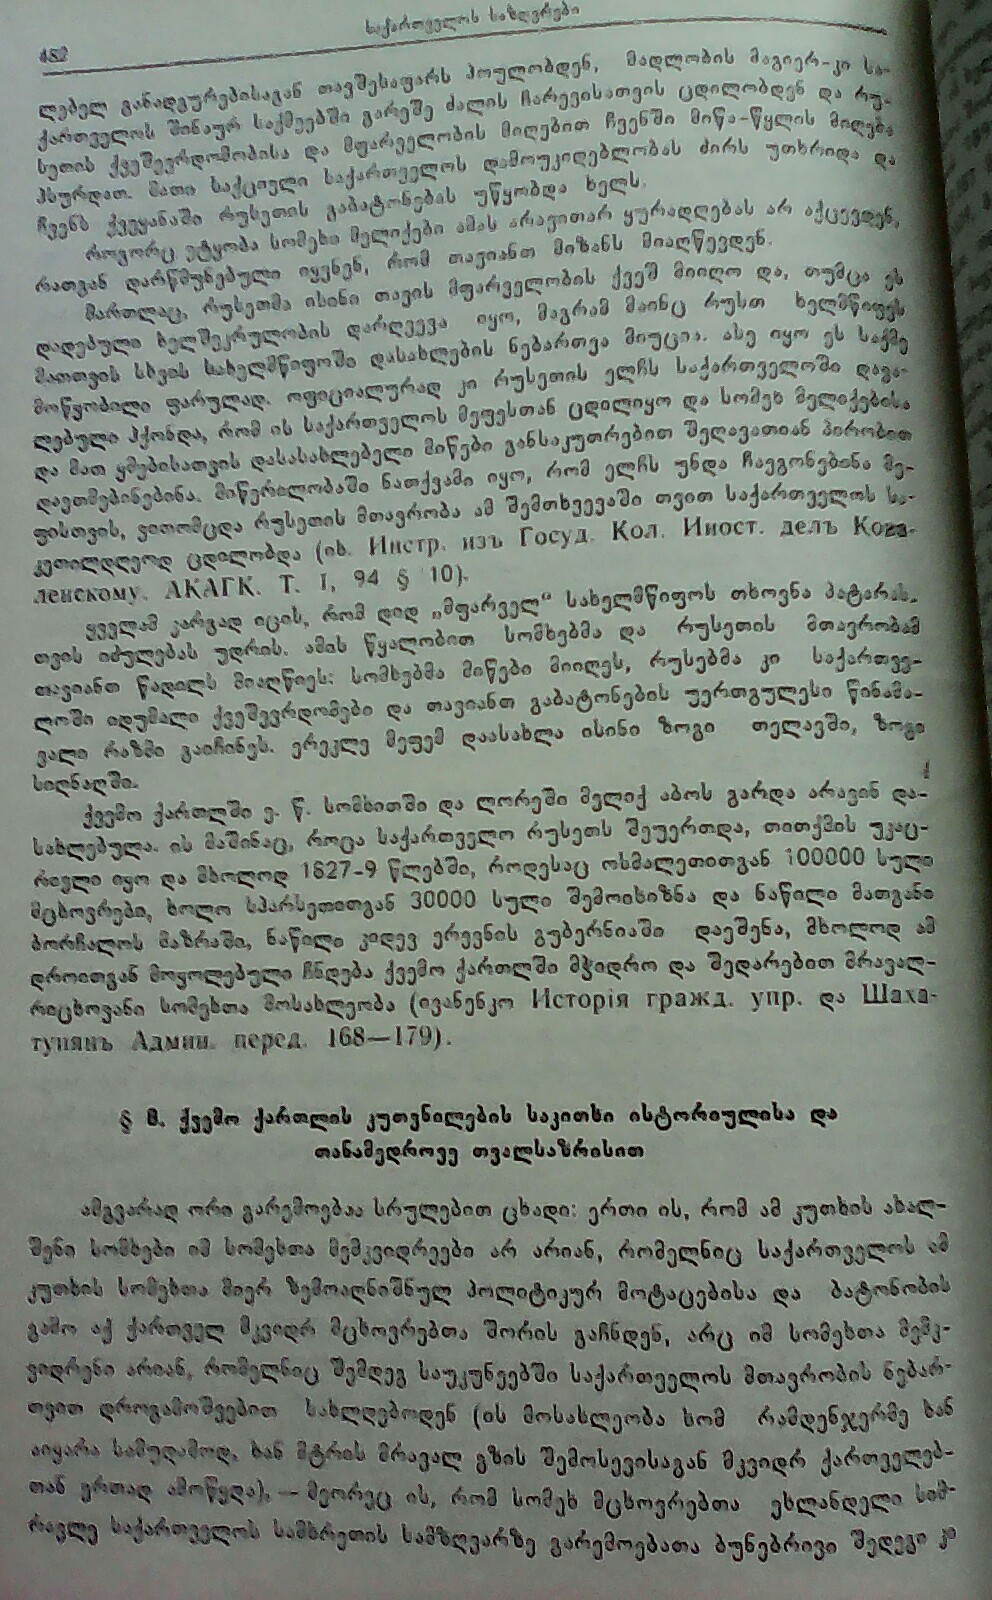 საქართველოს საზღვრები
482
ლებელ განადგურებისაგან თავშესაფარს პოულობდენ, მადლობის მაგიერ-კი სა-
ქართველოს შინაურ საქმეებში გარეშე ძალის ჩარევისათვის ცდილობდენ და რუ-
სეთის ქვეშევრდომობისა და მფარველობის მიღებით ჩვენში მიწა-წყლის მიღება
ჰსურდათ. მათი საქციელი საქართველოს დამოუკიდებლობას ძირს უთხრიდა და
ჩვენს ქვეყანაში რუსეთის გაბატონებას უწყობდა ხელს.
როგორც ეტყობა სომეხი მელიქები ამას არავითარ ყურადღებას არ აქცევდენ,
რათგან დარწმუნებული იყვნენ, რომ თავიანთ მიზანს მიაღწევდენ.
მართლაც, რუსეთმა ისინი თავის მფარველობის ქვეშ მიიღო და, თუმცა ეს
დადებული ხელშეკრულობის დარღვევა იყო, მაგრამ მაინც რუსთ ხელმწიფეს
მათთვის სხვის სახელმწიფოში დასახლების ნებართვა მიუცია. ასე იყო ეს საქმე
მოწყობილი ფარულად. ოფიციალურად კი რუსეთის ელჩს საქართველოში დავა-
ლებული ჰქონდა, რომ ის საქართველოს მეფესთან ცდილიყო და სომეხ მელიქებისა
და მათ ყმებისათვის დასასახლებელი მიწები განსაკუთრებით შეღავათიან პირობით
დაეთმებინებინა. მიწერილობაში ნათქვამი იყო, რომ ელჩს უნდა ჩაეგონებინა მე-
ფისთვის, ვითომცდა რუსეთის მთავრობა ამ შემთხვევაში თვით საქართველოს სა-
კეთილდღეოდ ცდილობდა (იხ. Инстр. изъ Госуд. Кол. Иност. делъ Кова-
ленскому. АКАГК. Т. I, 94 § 10).
ყველამ კარგად იცის, რომ დიდ „მფარველ“ სახელმწიფოს თხოვნა პატარას.
თვის იძულებას უდრის. ამის წყალობით სომხებმა და რუსეთის მთავრობამ
თავიანთ წადილს მიაღწიეს: სომხებმა მიწები მიიღეს, რუსებმა კი საქართვე-
ლოში იდუმალი ქვეშევრდომები და თავიანთ გაბატონების უერთგულესი წინამა-
ვალი რაზმი გაიჩინეს. ერეკლე მეფემ დაასახლა ისინი ზოგი თელავში, ზოგი
სიღნაღში.
ქვემო ქართლში ე. წ. სომხითში და ლორეში მელიქ აბოს გარდა არავინ და-
სახლებულა. ის მაშინაც, როცა საქართველო რუსეთს შეუერთდა, თითქმის უკაც-
რიელი იყო და მხოლოდ 1827-9 წლებში, როდესაც ოსმალეთითგან 100000 სული
მცხოვრები, ხოლო სპარსეთითგან 30000 სული შემოიხიზნა და ნაწილი მათგანი
ბორჩალოს მაზრაში, ნაწილი კიდევ ერევნის გუბერნიაში დაეშენა, მხოლოდ ამ
დროითგან მოყოლებული ჩნდება ქვემო ქართლში მჭიდრო და შედარებით მრავალ-
რიცხოვანი სომეხთა მოსახლეობა (ივანენკო Исторія гражд. упр. და Шаха-
тунянъ Админ. перед. 168—179).
§ 8. ქვემო ქართლის კუთვნილების საკითხი ისტორიულისა და
თანამედროვე თვალსაზრისით
ამგვარად ორი გარემოებაა სრულებით ცხადი: ერთი ის, რომ ამ კუთხის ახალ-
შენი სომხები იმ სომეხთა მემკვიდრეები არ არიან, რომელნიც საქართველოს ამ
კუთხის სომეხთა მიერ ზემოაღნიშნულ პოლიტიკურ მოტაცებისა და ბატონობის
გამო აქ ქართველ მკვიდრ მცხოვრებთა შორის გაჩნდენ, არც იმ სომეხთა მემკ-
ვიდრენი არიან, რომელნიც შემდეგ საუკუნეებში საქართველოს მთავრობის ნებარ-
თვით დროგამოშვებით სახლდებოდენ (ის მოსახლეობა ხომ რამდენჯერმე ხან
აიყარა სამუდამოდ, ხან მტრის მრავალ გზის შემოსევისაგან მკვიდრ ქართველებ-
თან ერთად ამოწყდა), — მეორეც ის, რომ სომეხ მცხოვრებთა ეხლანდელი სიმ-
რავლე საქართველოს სამხრეთის სამზღვარზე გარემოებათა ბუნებრივი შედეგი კი